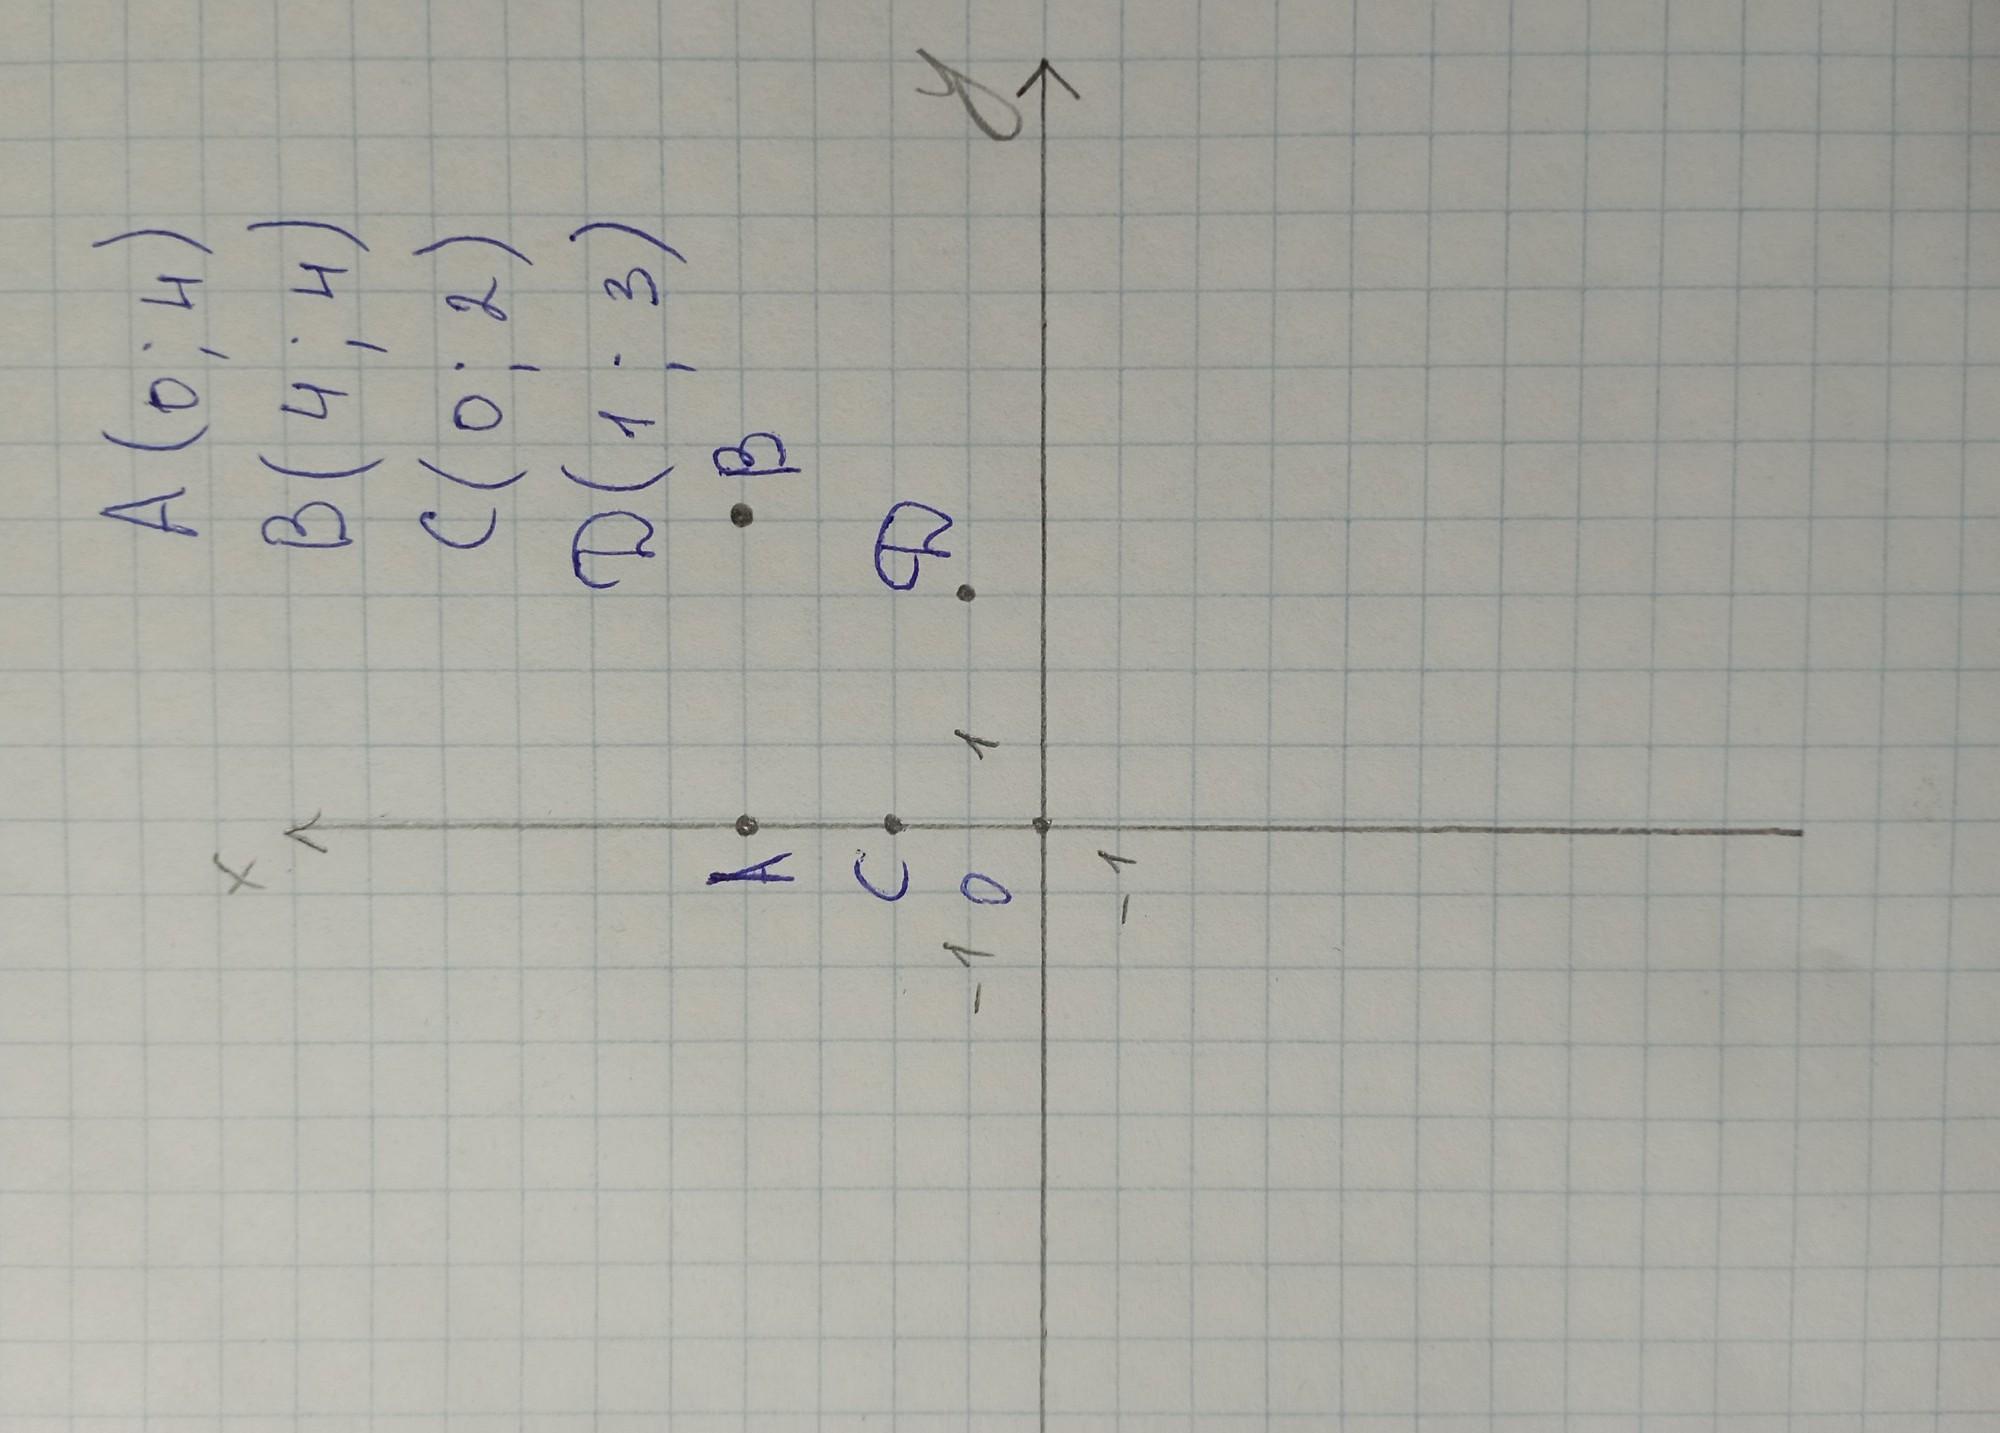 A(0;4)
B(4;4)
C(0;2)
D(1;3)
x
A
C
0
-1
-1
1
B
D
y